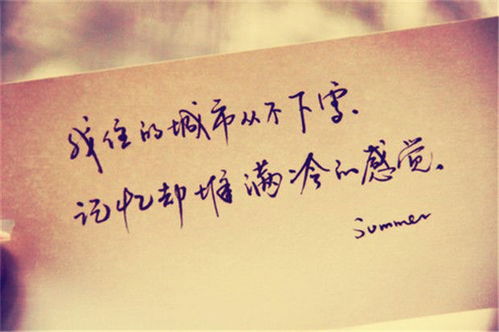 我住的城市从不下雪、
记忆却堆满冷的感觉。
summer